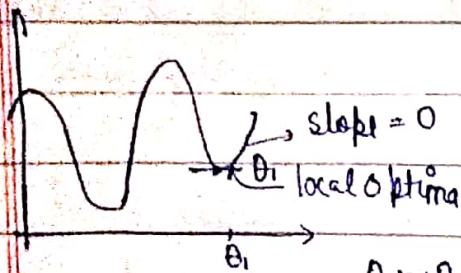 slope = 0
θ₁
local optima
θ₁